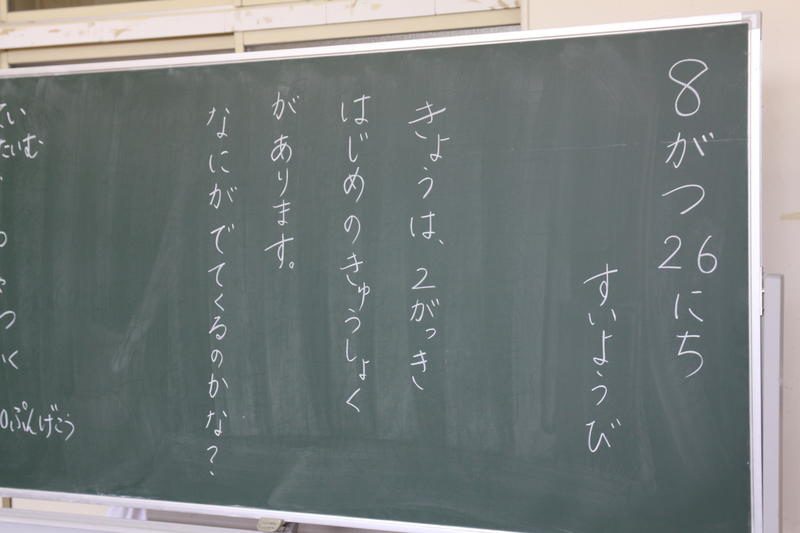 8がつ26にち
すいようび
きょうは、2がっき
はじめのきゅうしょく
があります。
なにがでてくるのかな?
たいむ
ぷんげこう